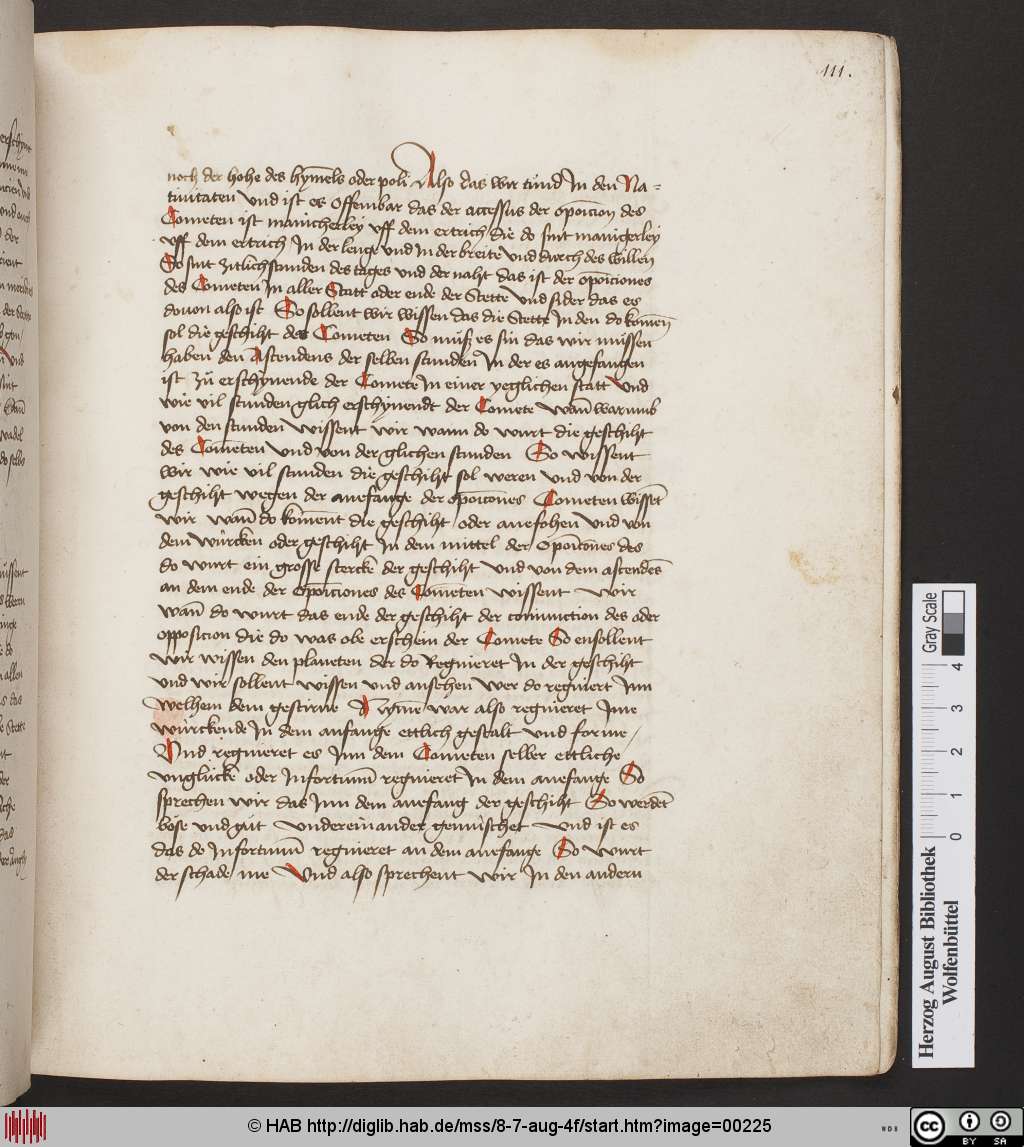 111.
noch der hohe des hymels oder poli Also das wir tund In den Na=
tiuitaten Vnd ist es Offembar das der accessus der opoicion des
Cometen ist manicherley vff dem ertrich die do sint manigerley
vff dem ertrich In der lenge vnd In der breite vnd durch des willen
So sint zitlich stunden des tages vnd der naht das ist der opoiciones
des Cometen In aller Statt oder ende der Stette Vnd sider das es
douon also ist So sollent wir wissen das die Stette In den do komen
sol die geschiht des Cometen So muß es sin das wir mussen
haben den Astendens der selben stunden In der es angefangen
ist zu erschynende der Comete In einer yeglichen statt Vnd
wie vil stunden glich erschynendt der Comete Wan warumb
von den stunden wissent wir wann do wurt die geschiht
des Cometen Vnd von der glichen stunden So wissent
wir wie vil stunden die geschiht sol weren Vnd von der
geschiht wegen der anefange der opoicones Cometen wisset
wir wan do koment die geschiht oder anefohen Vnd von
dem wurcken oder geschiht In dem mittel der Opoicones des
do wurt ein grosse stercke der geschiht Vnd von dem astendes
an dem ende der opoiciones des Cometen wissent wir
wan do wurt das ende der geschiht der coniunction des oder
opposicion die do was obe erschein der Comete So ensollent
wir wissen den planeten der do Regnieret In der geschiht
vnd wir sollent wissen vnd ansehen wer do regniert Inn
welhem dem gestirne war also regnieret Ime
wurckende In dem anfange ettlich gestalt Vnd forme /
Vnd regnieret es Inn dem Cometen selber ettliche
vnglucke oder Infortunium regnieret In dem anefange So
sprechen wir das Inn dem anefang der geschiht So werdet
bose vnd gut vndereinander gemischet Vnd ist es
das do Infortunium regnieret an dem anefange So wurt
der schade me Vnd also sprechent wir In den andern
Gray Scale
0 1 2 3 4
Herzog August Bibliothek
Wolfenbüttel
© HAB http://diglib.hab.de/mss/8-7-aug-4f/start.htm?image=00225
WDB
CC BY SA